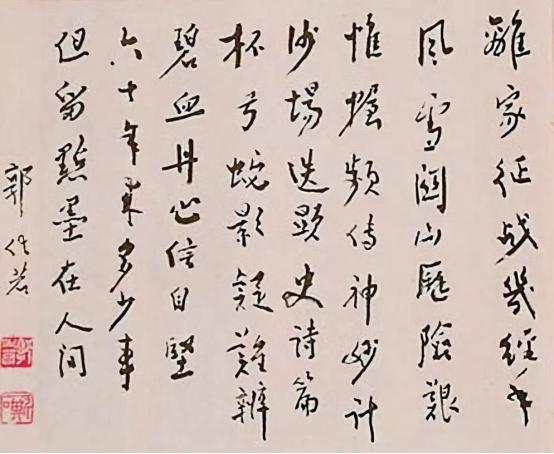 離家征战幾經年
風雪關山歷險艱
帷握頻傳神妙计
沙場迭顯史詩篇
杯弓蛇影疑難辨
碧血丹心信自堅
六十年来多少事
但留點墨在人间
郭化若